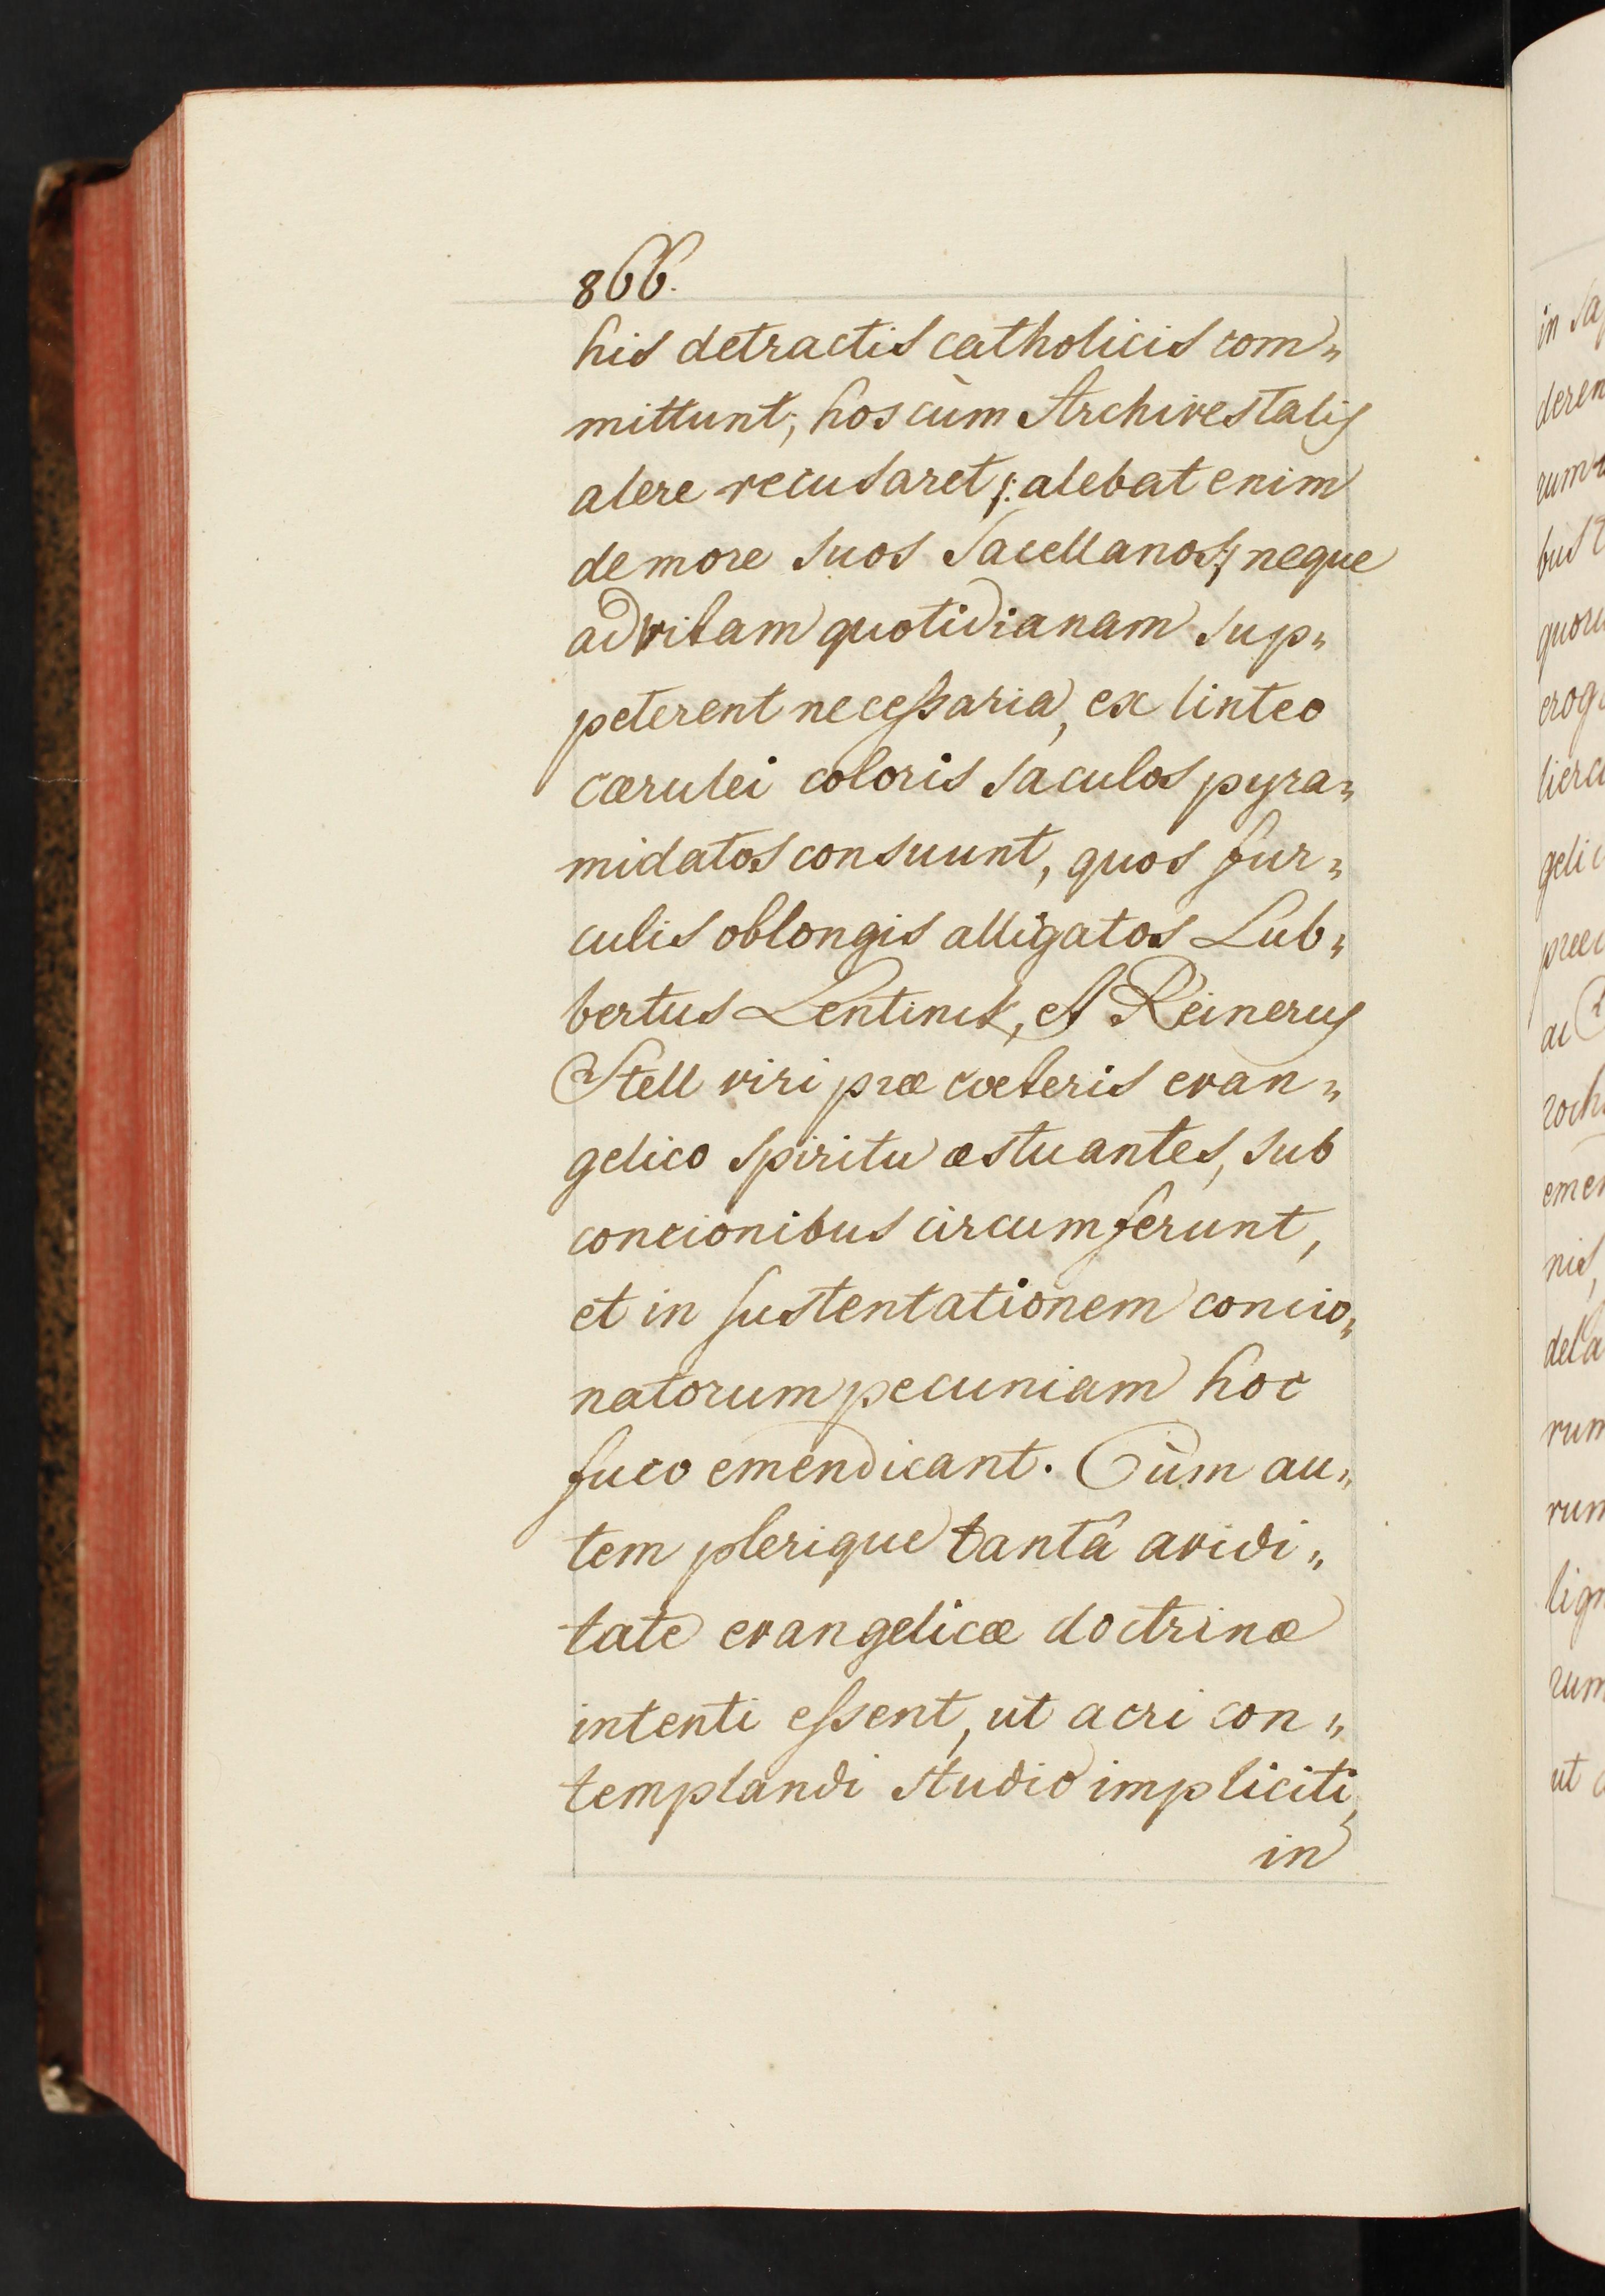 866.
his detractis catholicis com„
mittunt; hos cùm Archivestalis
alere recusaret /: alebat enim
de more suos Sacellanos :/ neque
ad vitam quotidianam sup„
peterent necessaria, ex linteo
cærulei coloris saculos pyra„
midatos consuunt, quos fur„
culis oblongis alligatos Lub„
bertus Lentinck, et Reinerus
Stell viri præ cæteris evan„
gelico spiritu æstuantes, sub
concionibus circumferunt,
et in sustentationem concio„
natorum pecuniam hoc
fuco emendicant. Cùm au„
tem plerique tantâ avidi„
tate evangelicæ doctrinæ
intenti essent, ut acri con„
templandi studio impliciti,
in
in
deren
bus
quoru
gelic
ac
emen
nis,
dela
rum
rum
lign
rum
ut